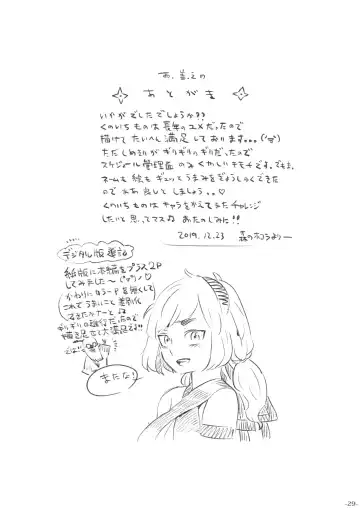 あとがき
いかがでしたでしょうか??
くのいちものは長年のユメだったので
描けてたいへん満足しております...
ただしめきりがギリギリ。ギリだったので
スケジュール管理面のみくやしいキモチです。でもま、
ネームも絵もギュッとうまみをぎょうしゅくできた
ので まあ良しとしましょう..♡
くのいちものはキャラをかえてまたチャレンジ
したいと思ってマス♪ あたのしみに!!
2019.12.23
デジタル版追記
紙版に本編をプラス2P
してみました〜
かわりにカラーPを無くして
これでうまいこと
ギリギリの
描き足せて大満足です!!
またな!
-29-